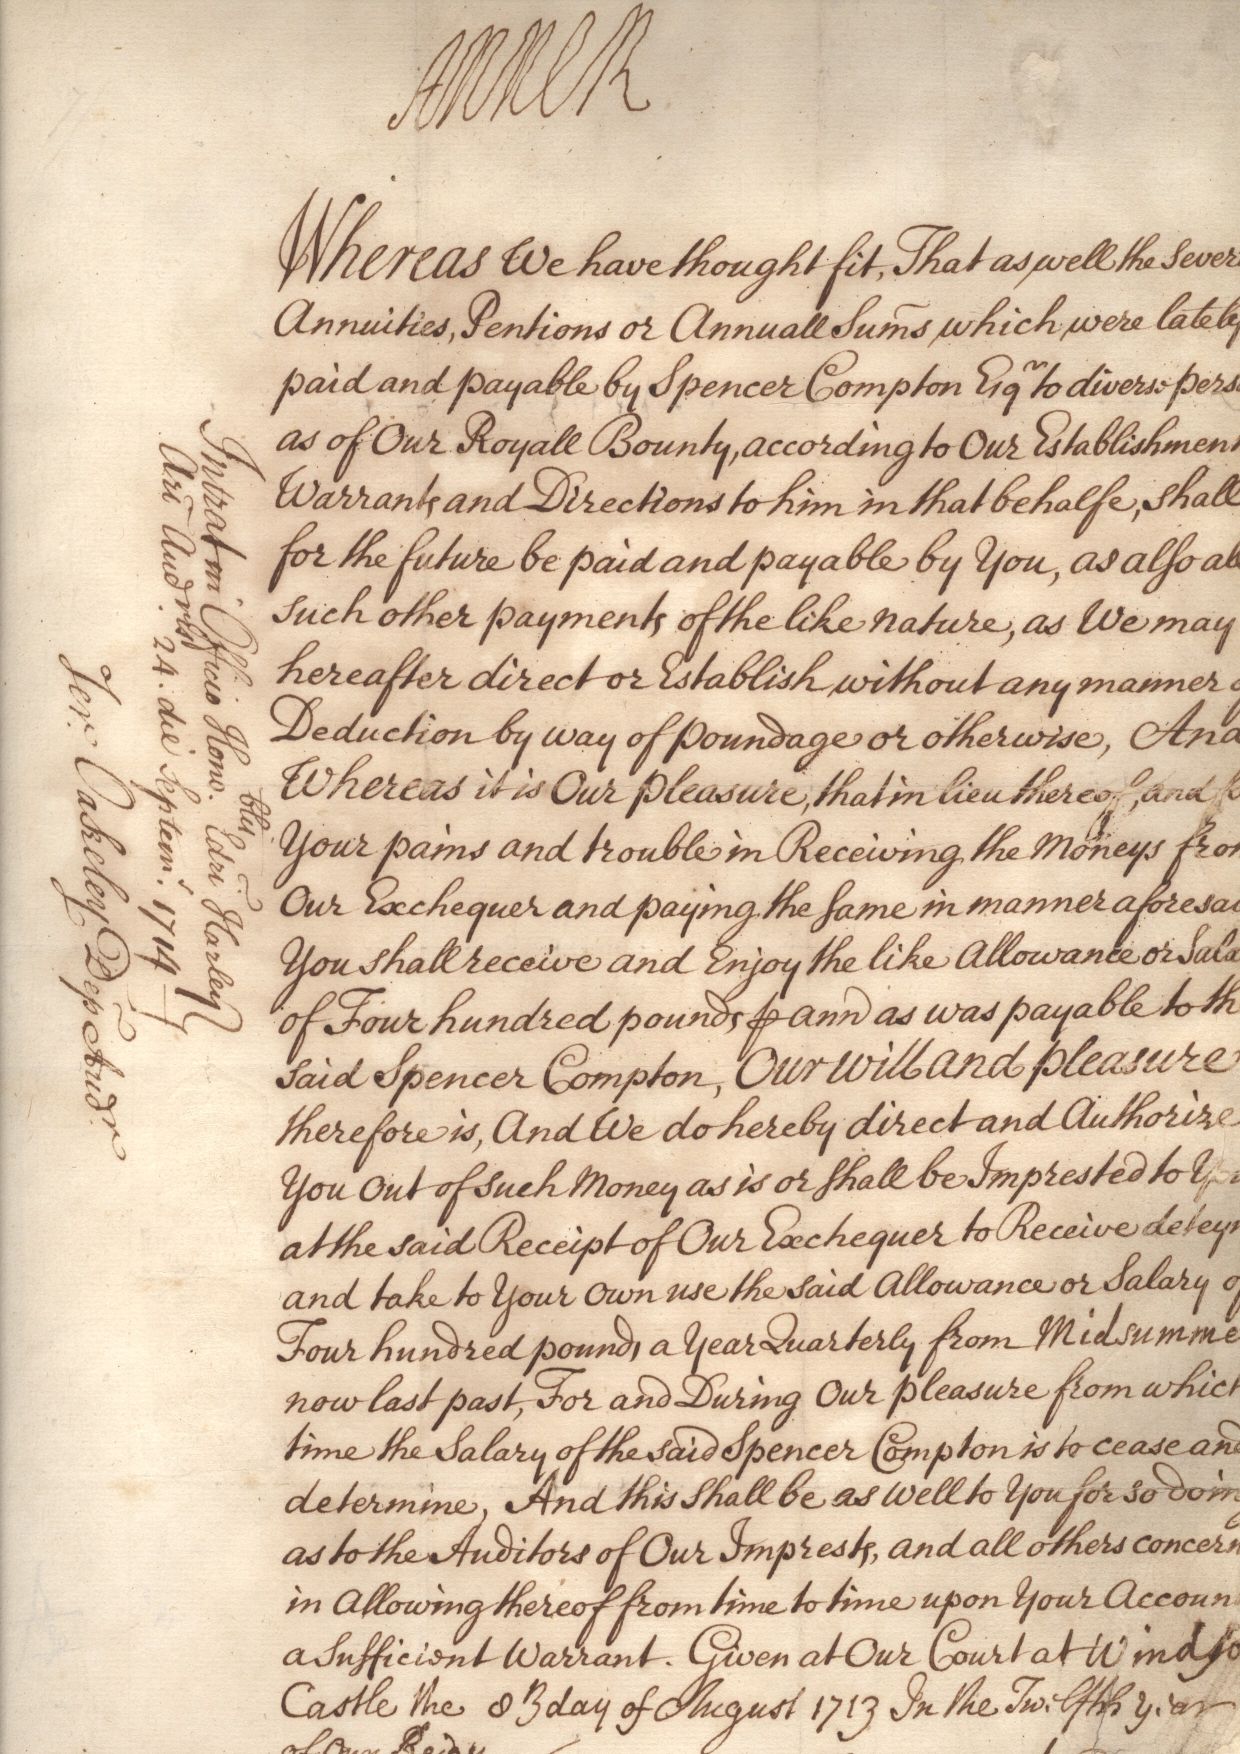 ANNE R
Whereas We have thought fit, That as well the sever
Annuities, Pentions or Annuall Sum̃s which were lately
paid and payable by Spencer Compton Esqr to divers pers
as of Our Royall Bounty, according to Our Establishment
Warrants and Directions to him in that behalfe, shall
for the future be paid and payable by You, as also all
such other payments of the like nature, as We may
hereafter direct or Establish without any manner o
Deduction by way of poundage or otherwise, And
Whereas it is Our pleasure, that in lieu thereof, and
Your pains and trouble in Receiving the Moneys from
Our Exchequer and paying the same in manner aforesaid
You shall receive and Enjoy the like Allowance or Sala
of Four hundred pounds ꝑ ann̄ as was payable to th
said Spencer Compton, Our Will and pleasure
therefore is, And We do hereby direct and Authorize
You out of such Money as is or shall be Imprested to You
at the said Receipt of Our Exchequer to Receive deteyn
and take to Your own use the said Allowance or Salary of
Four hundred pounds a Year Quarterly from Midsumme
now last past, For and During Our pleasure from which
time the Salary of the said Spencer Compton is to cease and
determine, And this shall be as well to You for so doing
as to the Auditors of Our Imprests, and all others concern
in Allowing thereof from time to time upon Your Accoun
a sufficient Warrant. Given at Our Court at Windso
Castle the 8th day of August 1713 In the Twelfth Year
of Our Reign
Intrat in Officio Hono.bli Edri Harley
Ar̃i Aud 24. die Septem.bris 1714
Jer: Oakeley Dep Audr